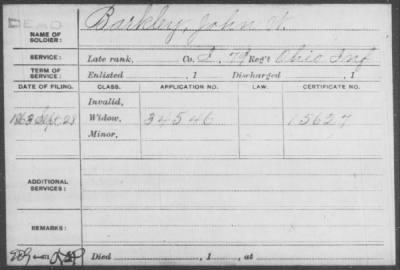 DEAD
NAME OF SOLDIER: Barkley, John W.
SERVICE: Late rank, Co. I, 79 Reg't Ohio Inf
TERM OF SERVICE: Enlisted , 1 Discharged , 1
DATE OF FILING. CLASS. APPLICATION NO. LAW. CERTIFICATE NO.
Invalid,
1863 Sept 28 Widow, 34546 15627
Minor,
ADDITIONAL SERVICES:
REMARKS:
Died , 1 , at